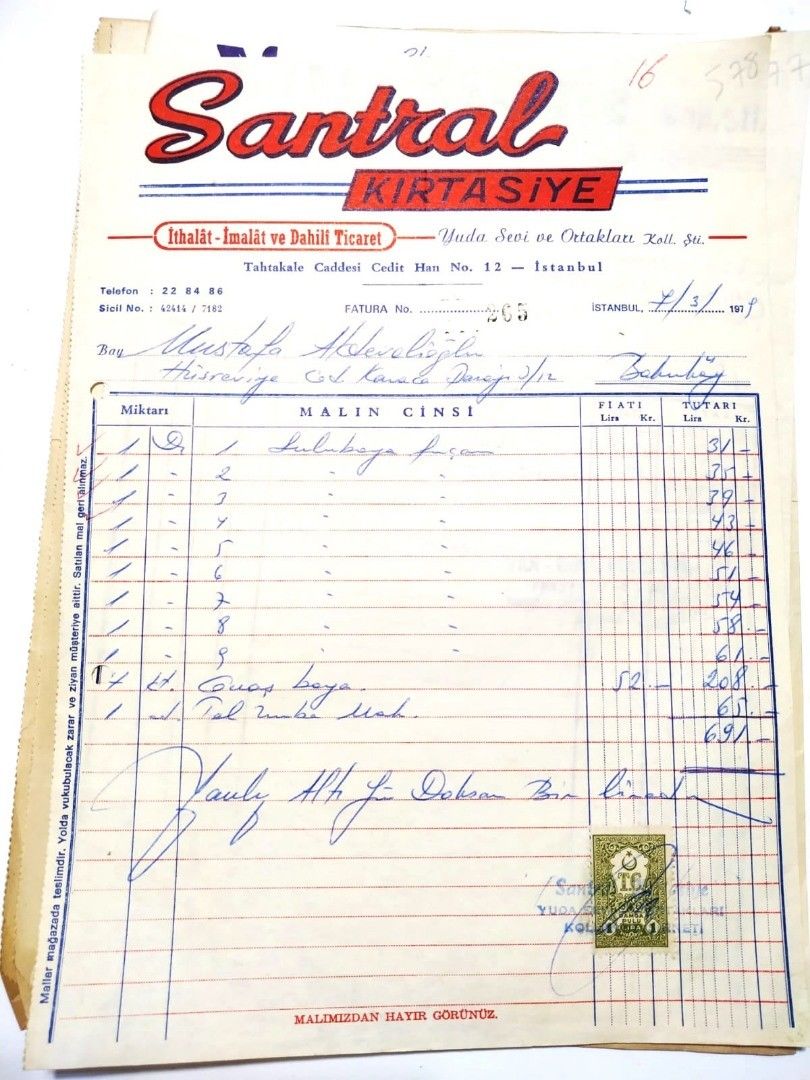 16
57877
Santral
KIRTASİYE
İthalât - İmalât ve Dahilî Ticaret
Yuda Sevi ve Ortakları Koll. Şti.
Tahtakale Caddesi Cedit Han No. 12 — İstanbul
Telefon : 22 84 86
Sicil No. : 42414 / 7182
FATURA No. 265
İSTANBUL, 7/3/1979
Bay Mustafa
Hüsreviye Cad. 3/12 Bakırköy
Miktarı MALIN CİNSİ FİATI TUTARI
Lira Kr. Lira Kr.
1 Dz 1 Suluboya fırçası 31 -
1 - 2 " " 35 -
1 - 3 " " 39 -
1 - 4 " " 43 -
1 - 5 " " 46 -
1 - 6 " " 51 -
1 - 7 " " 54 -
1 - 8 " " 58 -
1 - 9 " " 61 -
4 kt. Guaj boya. 52 - 208 -
1 ad. Tel Zımba Mak. 65 -
691 -
Yalnız Altı Yüz Doksan Bir liradır
T.C.
DAMGA PULU
1 LİRA 1
YUDA
Mallar mağazada teslimdir. Yolda vukubulacak zarar ve ziyan müşteriye aittir. Satılan mal geri alınmaz.
MALIMIZDAN HAYIR GÖRÜNÜZ.